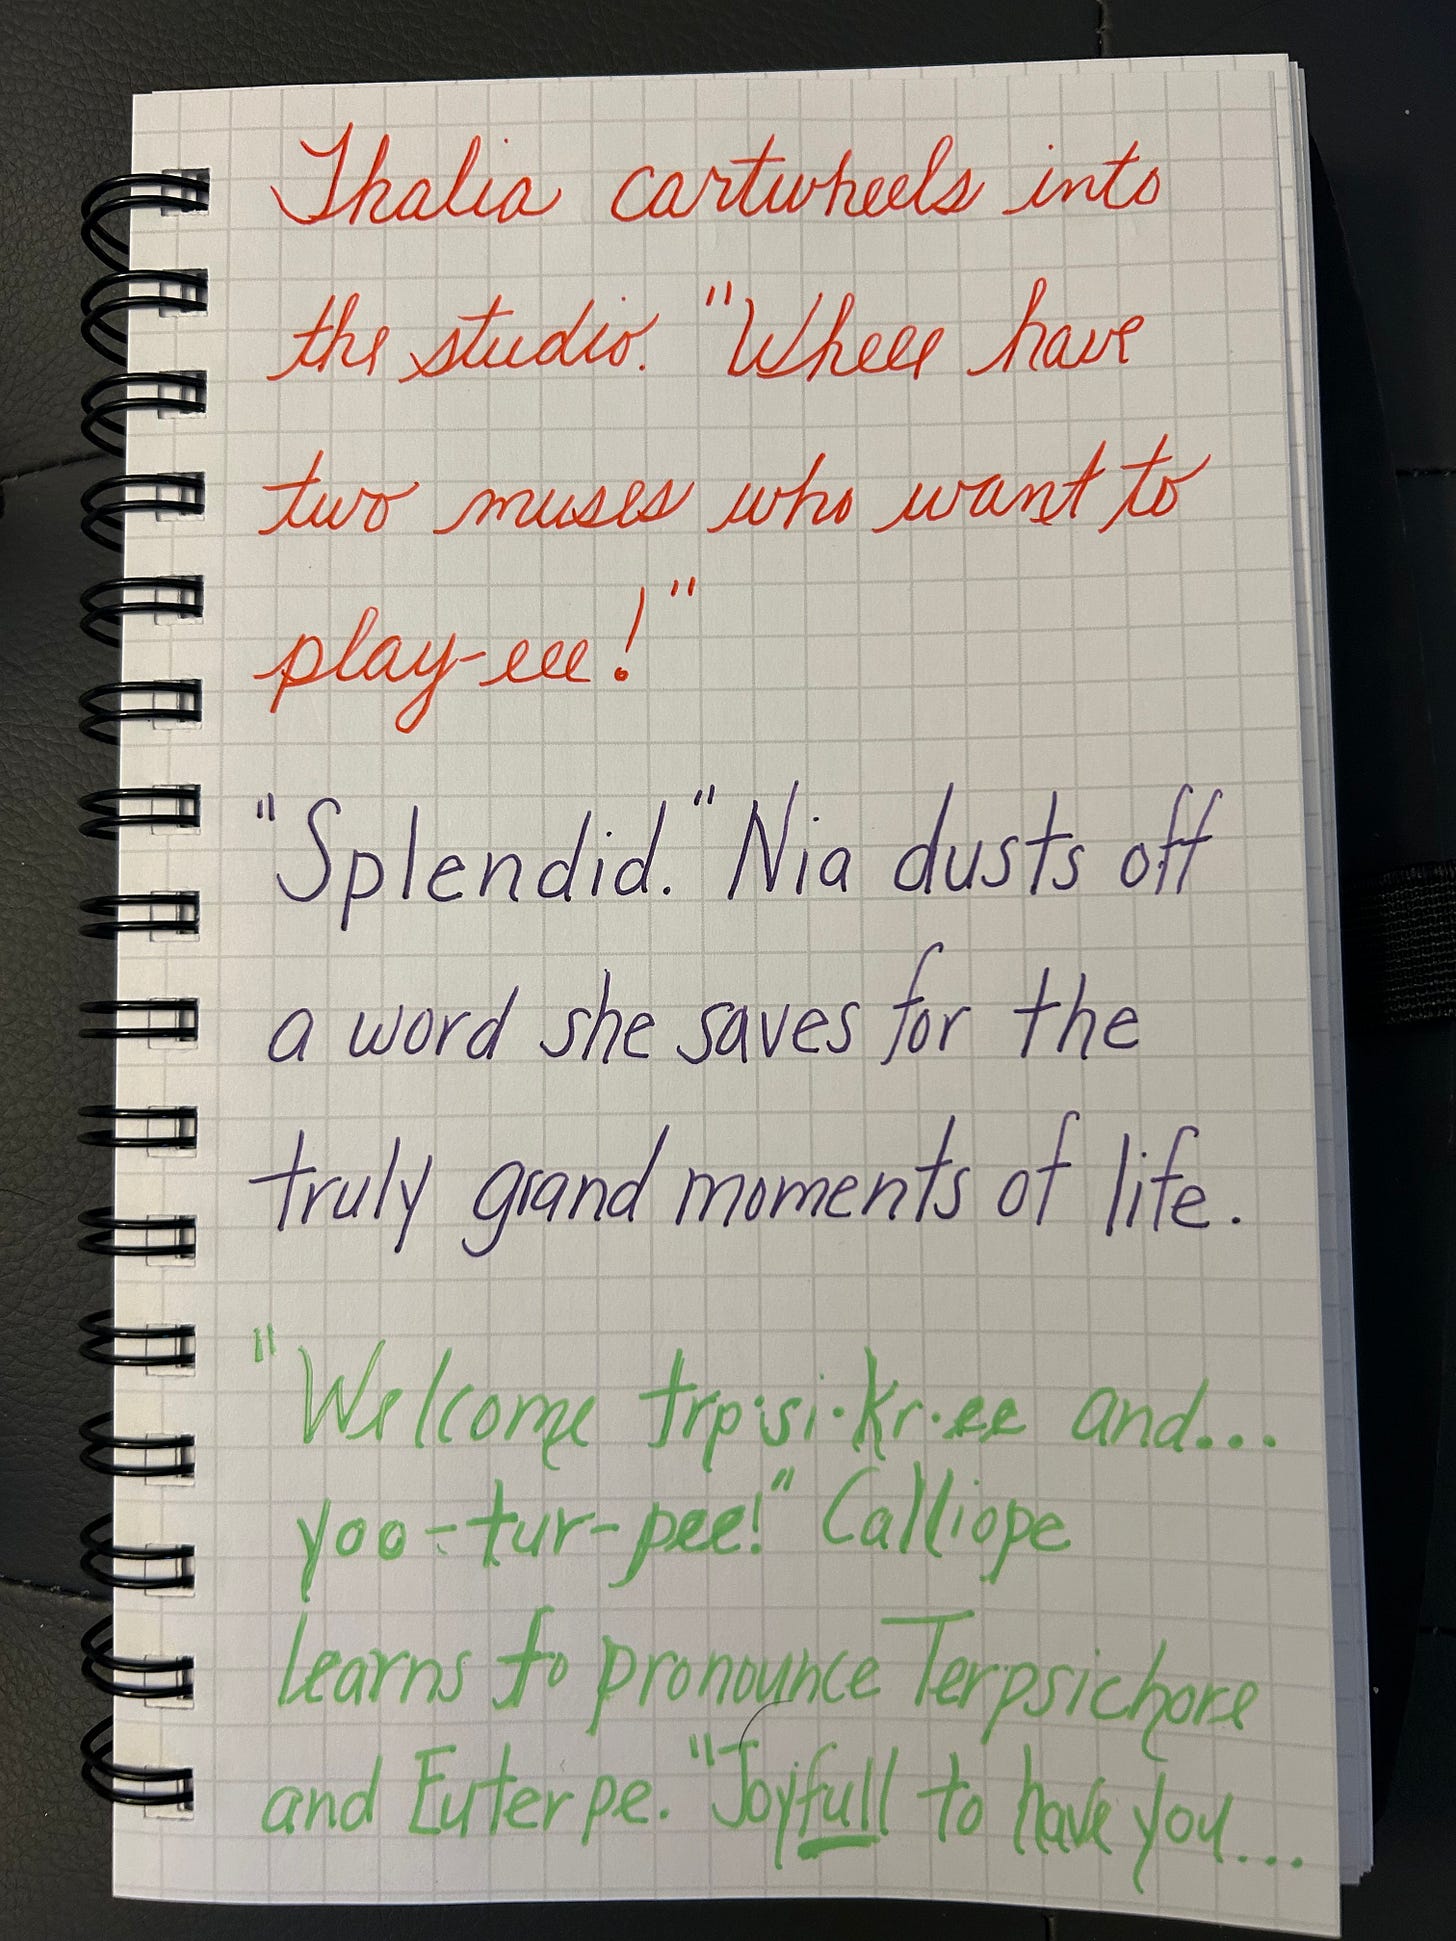 Thalia cartwheels into
the studio. "Wheee have
two muses who want to
play-eee!"
"Splendid." Nia dusts off
a word she saves for the
truly grand moments of life.
"Welcome trp·si·kr·ee and...
yoo-tur-pee!" Calliope
learns to pronounce Terpsichore
and Euterpe. "Joyfull to have you...